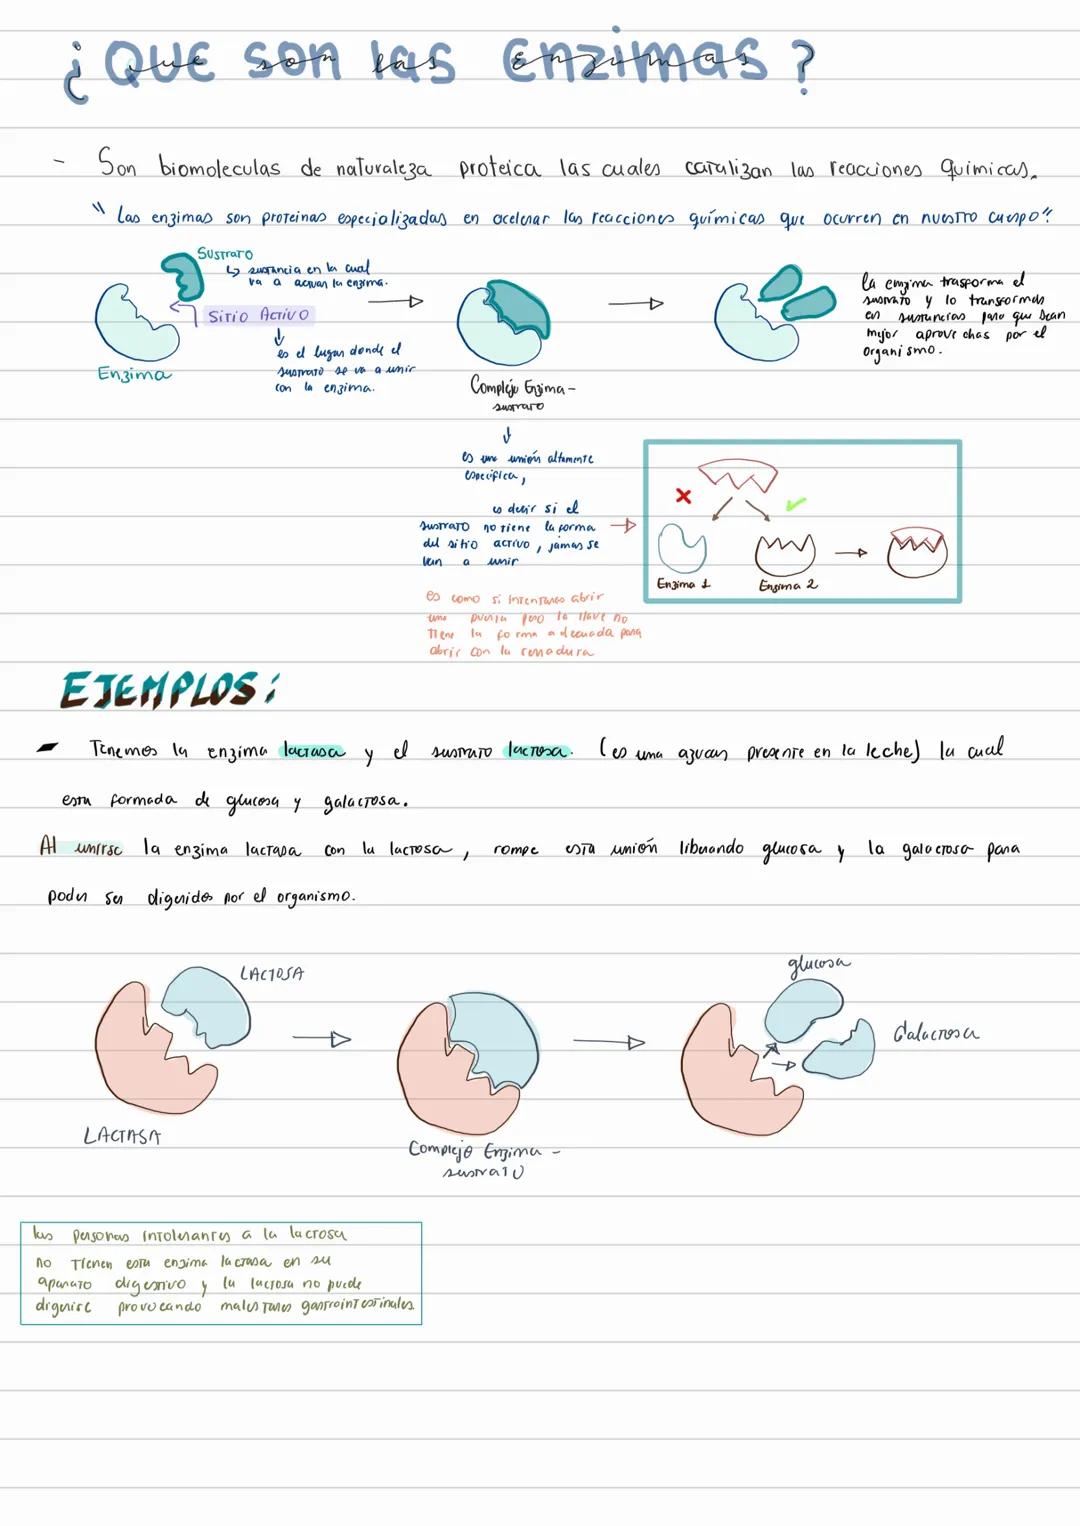 ¿QUE son las Enzimas?
- Son biomoleculas de naturaleza proteica las cuales catalizan las reacciones químicas.
"Las enzimas son proteinas especializadas en acelerar las reacciones químicas que ocurren en nuestro cuerpo"
Sustrato
↳ sustancia en la cual
va a actuar la enzima.
Sitio Activo
↓
es el lugar donde el
sustrato se va a unir
con la enzima.
Enzima
Complejo Enzima -
sustrato
la enzima trasforma el
sustrato y lo transforma
en sustancias para que sean
mejor aprovechas por el
organismo.
↓
es una unión altamente
especifica,
es decir si el
sustrato no tiene la forma
del sitio activo, jamas se
van a unir
es como si intentaras abrir
una puerta pero la llave no
tiene la forma adecuada para
abrir con la cerradura
Enzima 1
Enzima 2
EJEMPLOS:
- Tenemos la enzima lactasa y el sustrato lactosa. (es una azucar presente en la leche) la cual
esta formada de glucosa y galactosa.
Al unirse la enzima lactasa con la lactosa, rompe esta unión liberando glucosa y la galactosa para
poder ser digeridos por el organismo.
LACTOSA
LACTASA
Complejo Enzima -
sustrato
glucosa
Galactosa
las personas intolerantes a la lactosa
no tienen esta enzima lactasa en su
aparato digestivo y la lactosa no puede
digerirse provocando malestares gastrointestinales.